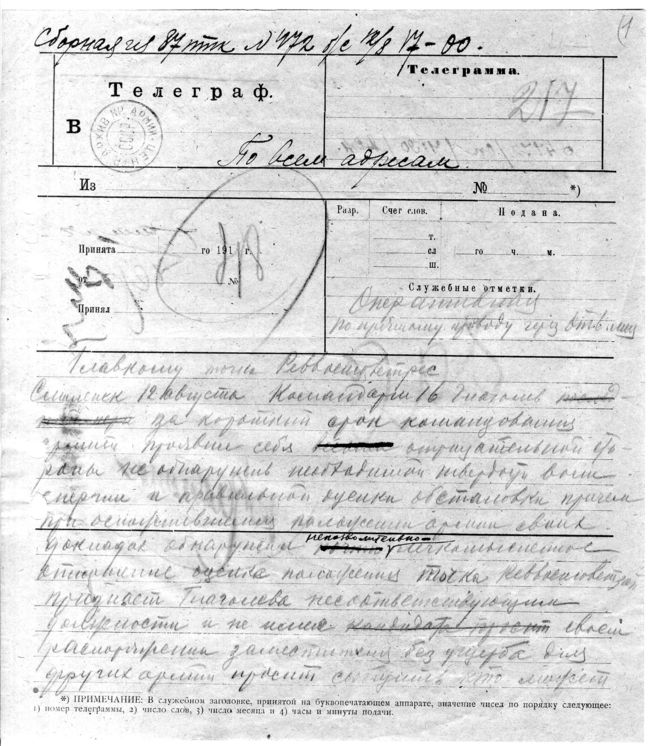 Сборная из 87 птк № 472 б/с 12/8 17-00.
1
Телеграф.
Телеграмма.
217
В
По всем адресам
Из № *)
Разр. Счет слов. Подана.
Принята го 191 г.
т.
сл го ч. м.
от №
ш.
Принял
Служебные отметки.
Оперативная
по прямому проводу
Главкому точка Реввоенсовет
Смоленск 12 августа Командарм 16 Глаголев
за короткий срок командования
армией проявил себя отрицательной сто-
роны не обнаружив необходимой твердости воли
энергии и правильной оценки обстановки причем
при осложнившемся положении армии своих
докладах обнаружил непозволительно легкомысленное
отношение оценке положения точка Реввоенсовет
признает Глаголева несоответствующим
должности и не имея кандидата просит своем
распоряжении заместителя без ущерба для
других армий просит сообщить кто может
*) ПРИМЕЧАНИЕ: В служебном заголовке, принятой на буквопечатающем аппарате, значение чисел по порядку следующее:
1) номер телеграммы, 2) число слов, 3) число месяца и 4) часы и минуты подачи.